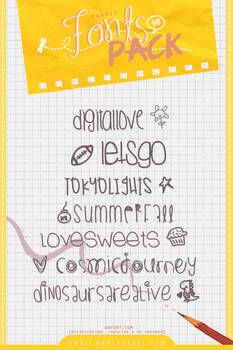 Fonts
PACK
digitallove
letsgo
TOKYOLIGHTS
summerfall
LOVESWEETS
cosmicjourney
dinosaursarealive
DAFONT.COM